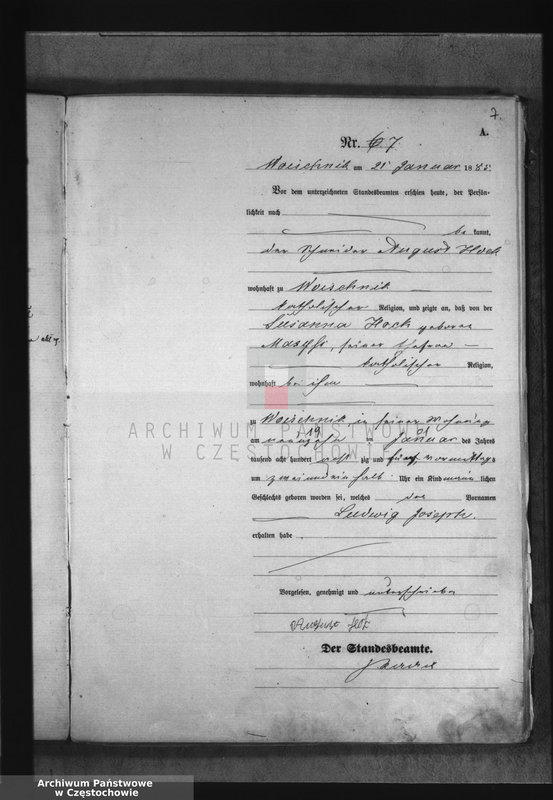 7.
A.
Nr. 7.
Woischnik am 21 Januar 1885.
Vor dem unterzeichneten Standesbeamten erschien heute, der Persön-
lichkeit nach
be kannt,
der Schneider August Hock
wohnhaft zu Woischnik
katholischer Religion, und zeigte an, daß von der
Susanna Hock geborene
seiner Ehefrau
katholischer Religion,
wohnhaft bei ihm
zu Woischnik in seiner Wohnung
am neunzehn 19 ten Januar des Jahres
tausend acht hundert acht zig und fünf vormittags
um zwei und ein halb Uhr ein Kind männ lichen
Geschlechts geboren worden sei, welches den Vornamen
Ludwig Joseph.
erhalten habe
Vorgelesen, genehmigt und unterschrieben
August
Der Standesbeamte.
ARCHIWUM PAŃSTWOWE
W CZĘSTOCHOWIE
Archiwum Państwowe
w Częstochowie